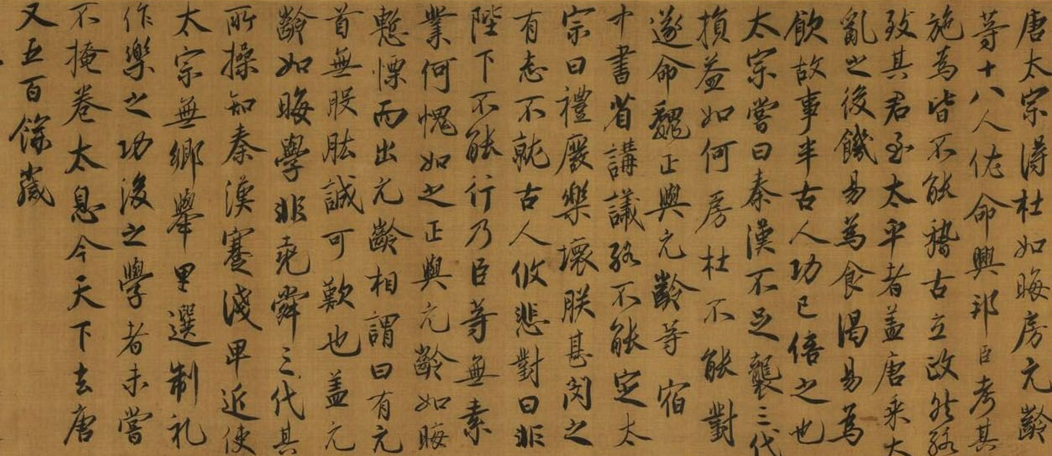 唐太宗得杜如晦房元齡
等十八人佐命興邦臣考其
施為皆不能稽古立政然終
致其君至太平者蓋唐乘大
亂之後饑易為食渴易為
飲故事半古人功已倍之也
太宗嘗曰秦漢不足襲三代
損益如何房杜不能對
遂命魏正與元齡等宿
中書省講議終不能定太
宗曰禮廢樂壞朕甚閔之
有志不就古人攸悲對曰非
陛下不能行乃臣等無素
業何愧如之正與元齡如晦
慙慄而出元齡相謂曰有元
首無股肱誠可歎也蓋元
齡如晦學非堯舜三代其
所操知秦漢蹇淺卑近使
太宗無鄉舉里選制礼
作樂之功後之學者未嘗
不掩卷太息今天下去唐
又五百餘歲